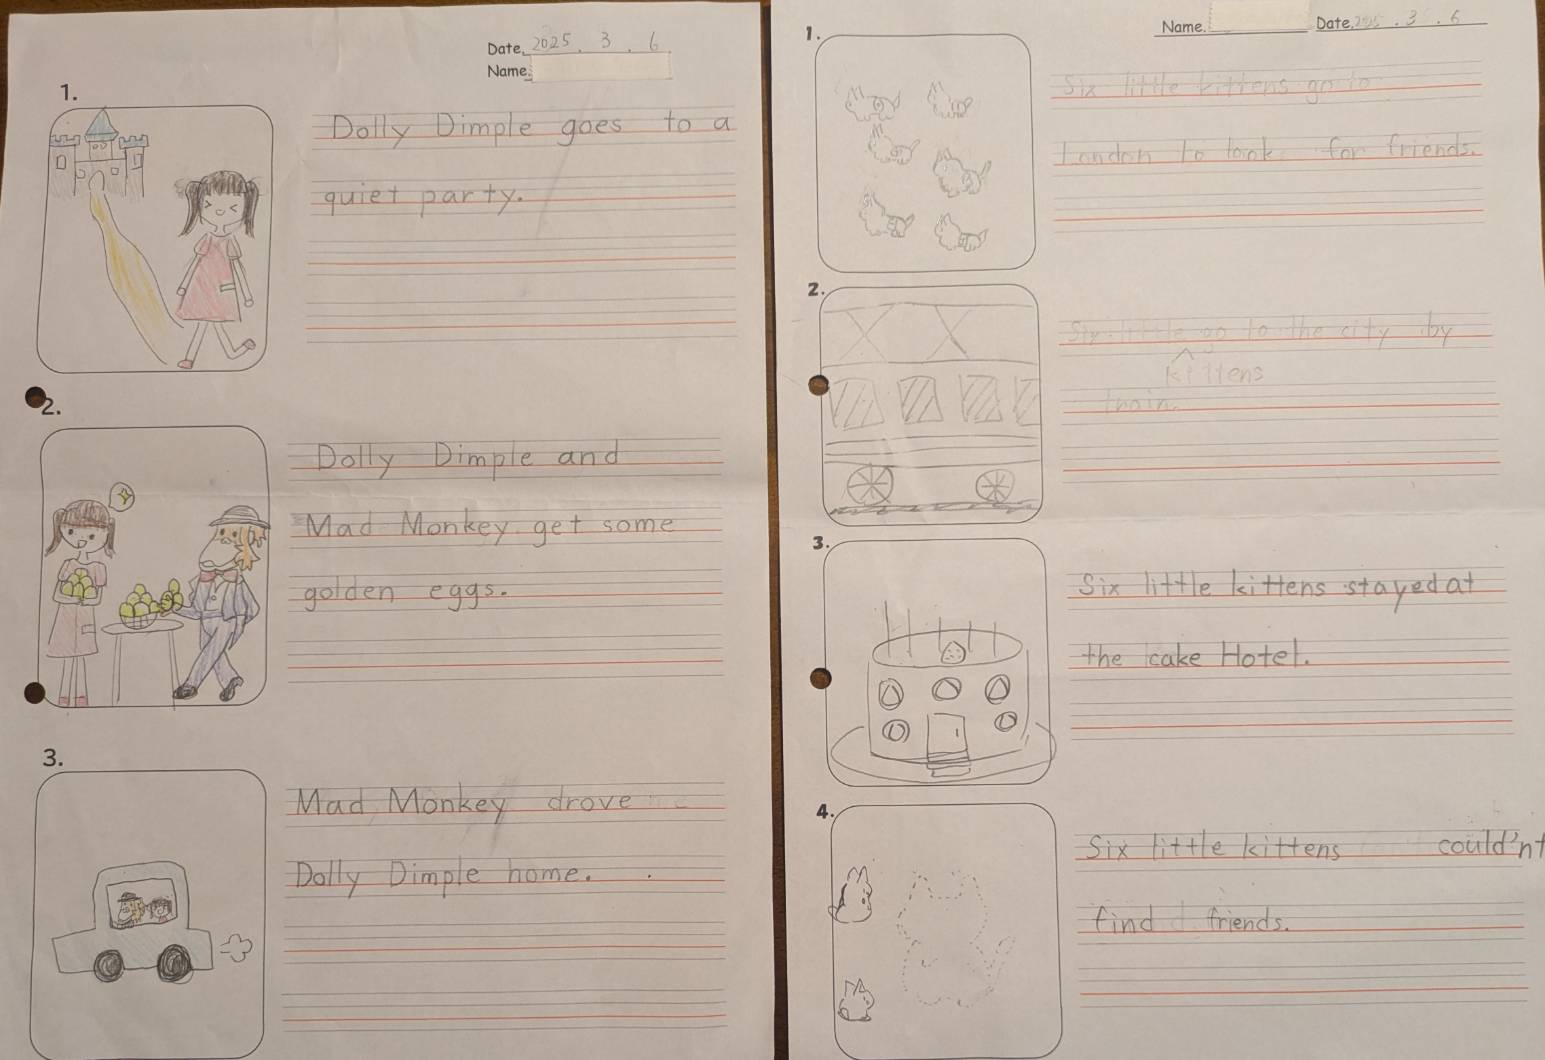 Date. 2025. 3. 6
Name.
1.
Dolly Dimple goes to a
quiet party.
2.
Dolly Dimple and
Mad Monkey get some
golden eggs.
3.
Mad Monkey drove
Dolly Dimple home.
Name. Date. 2025. 3. 6
1.
Six little kittens go to
London to look for friends.
2.
Six little go to the city by
kittens
train.
3.
Six little kittens stayed at
the cake Hotel.
4.
Six little kittens could'nt
find friends.